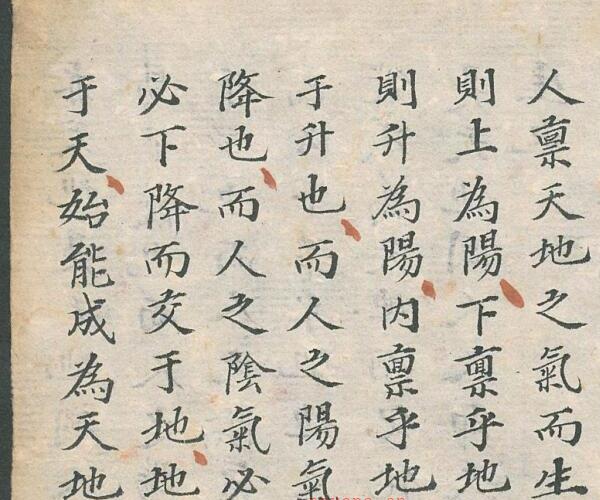 人禀天地之氣而生
則上為陽下禀乎地
則升為陽內禀乎地
于升也而人之陽氣
降也而人之陰氣必
必下降而交于地地
于天始能成為天地